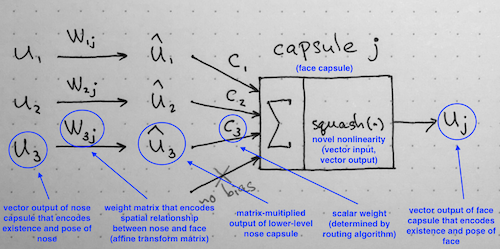 capsule j
(face capsule)
u1 W1j û1 C1
u2 W2j û2 C2
u3 W3j û3 C3
Σ squash(·) uj
novel nonlinearity
(vector input,
vector output)
no bias
vector output of nose
capsule that encodes
existence and pose of
nose
weight matrix that encodes
spatial relationship
between nose and face
(affine transform matrix)
matrix-multiplied
output of lower-level
nose capsule
scalar weight
(determined by
routing algorithm)
vector output of
face capsule that encodes
existence and pose of
face